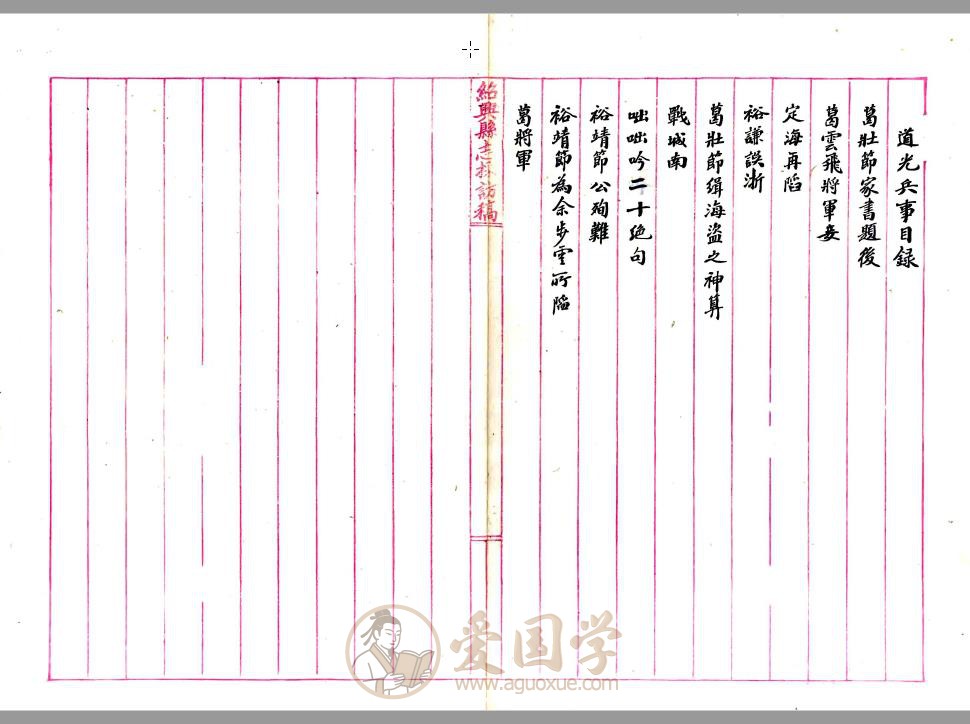 道光兵事目録
葛壯節家書題後
葛雲飛將軍妾
定海再陷
裕謙誤浙
葛壯節緝海盜之神算
戰城南
咄咄吟二十絶句
裕靖節公殉難
裕靖節為余步雲所陷
葛將軍
紹興縣志採訪稿
爱国学
www.aguoxue.com